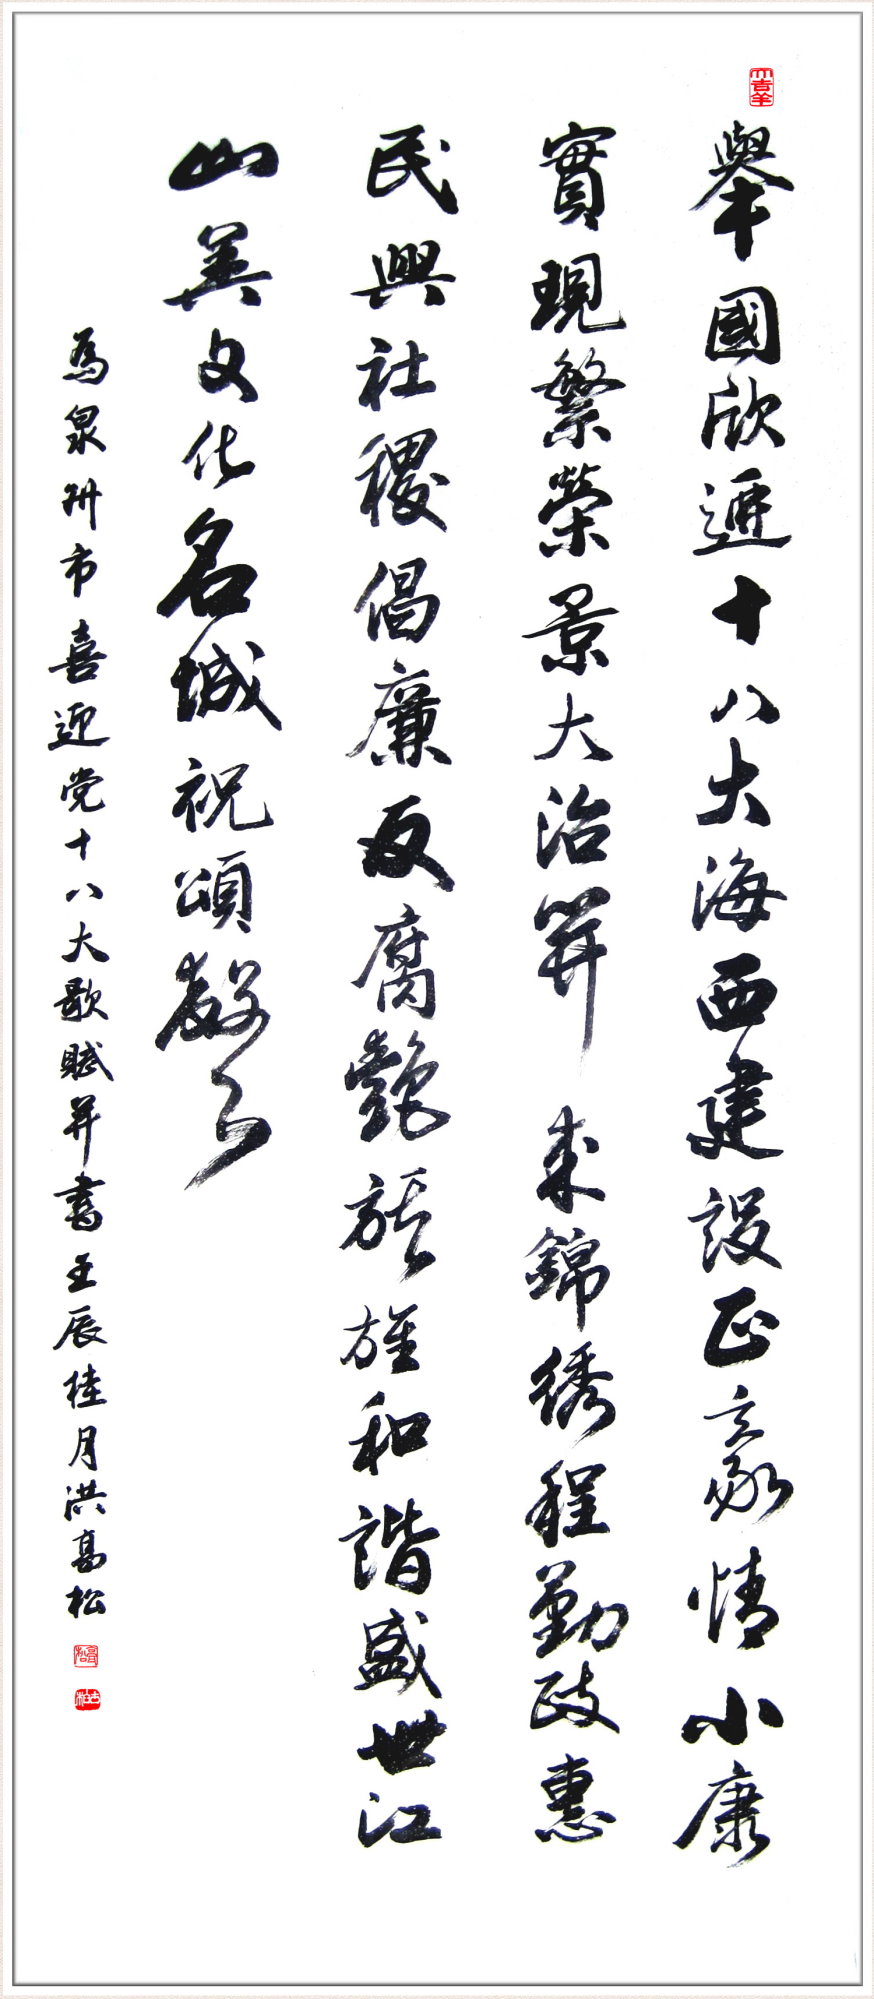 大吉羊
舉國欣十八大海西建設正豪情小康
實現繁榮景大治開來錦綉程勤政惠
民興社稷倡廉反腐艷旗旌和諧盛世江
山美文化名城祝頌聲
為泉州市喜迎党十八大歌賦并書壬辰桂月洪高松